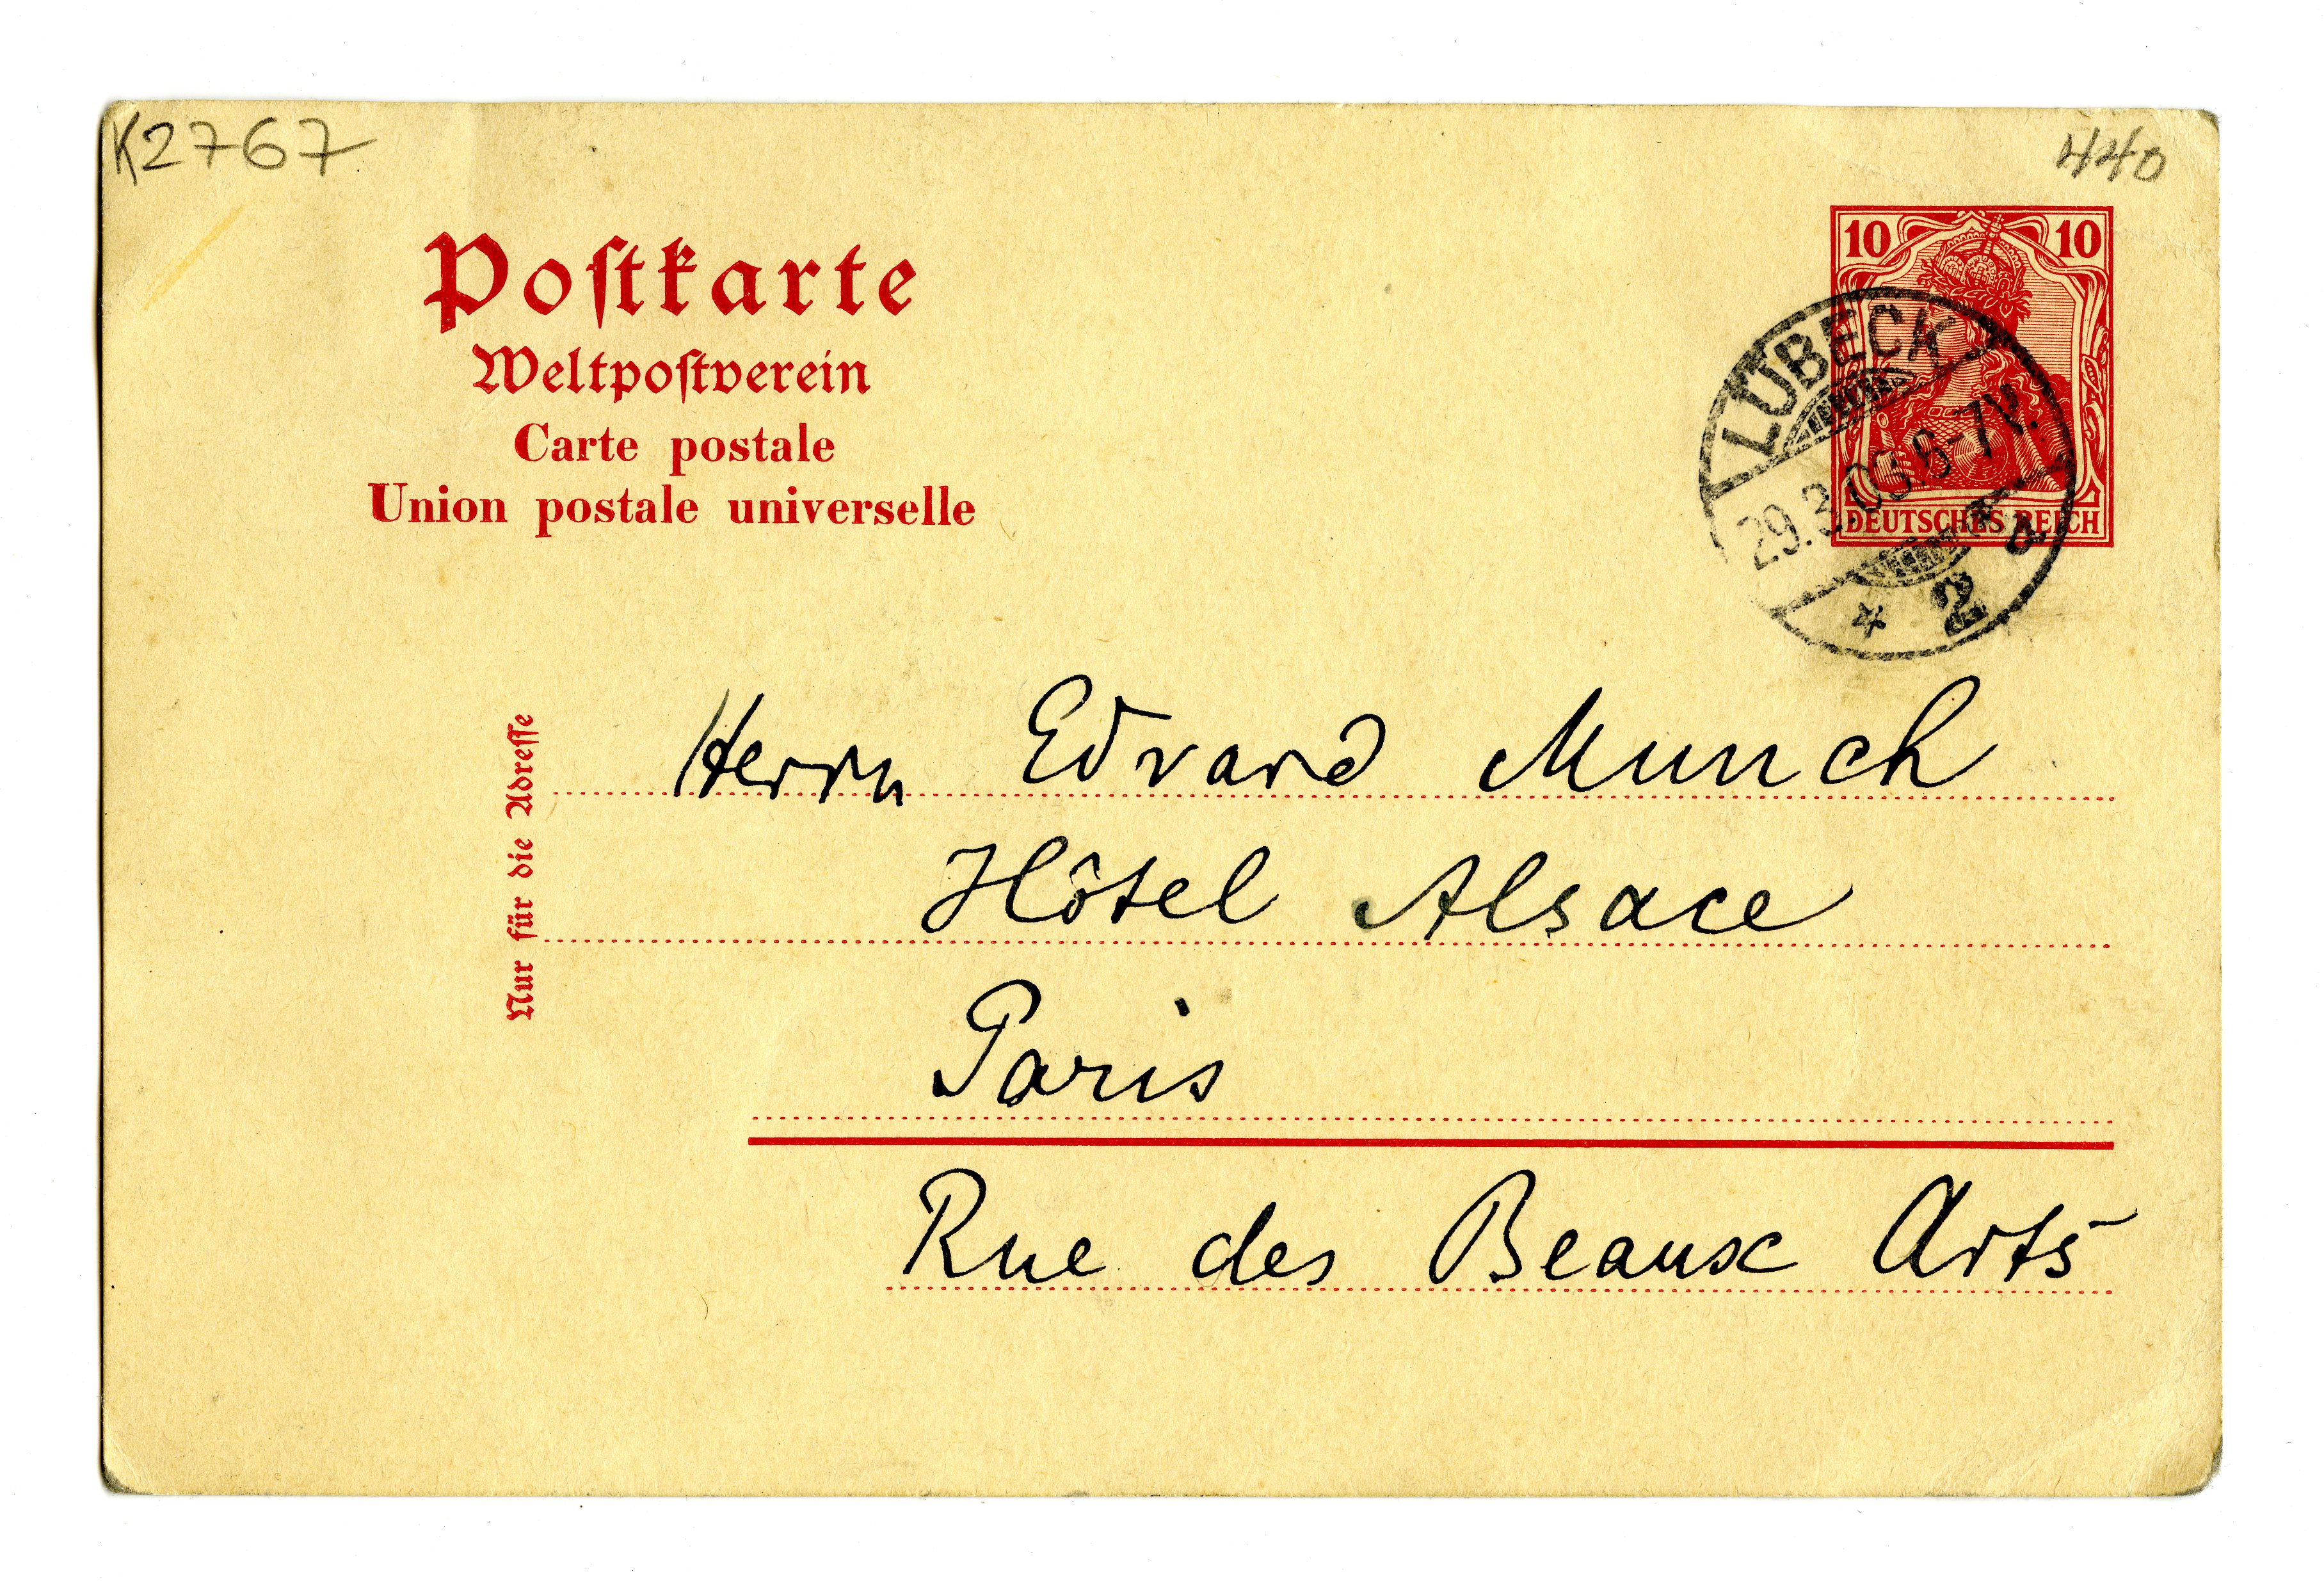 K2767
440
Postkarte
Weltpostverein
Carte postale
Union postale universelle
10 10
DEUTSCHES REICH
LÜBECK
29.3.03.6-7V.
* 2 a
Nur für die Adresse
Herrn Edvard Munch
Hôtel Alsace
Paris
Rue des Beaux Arts